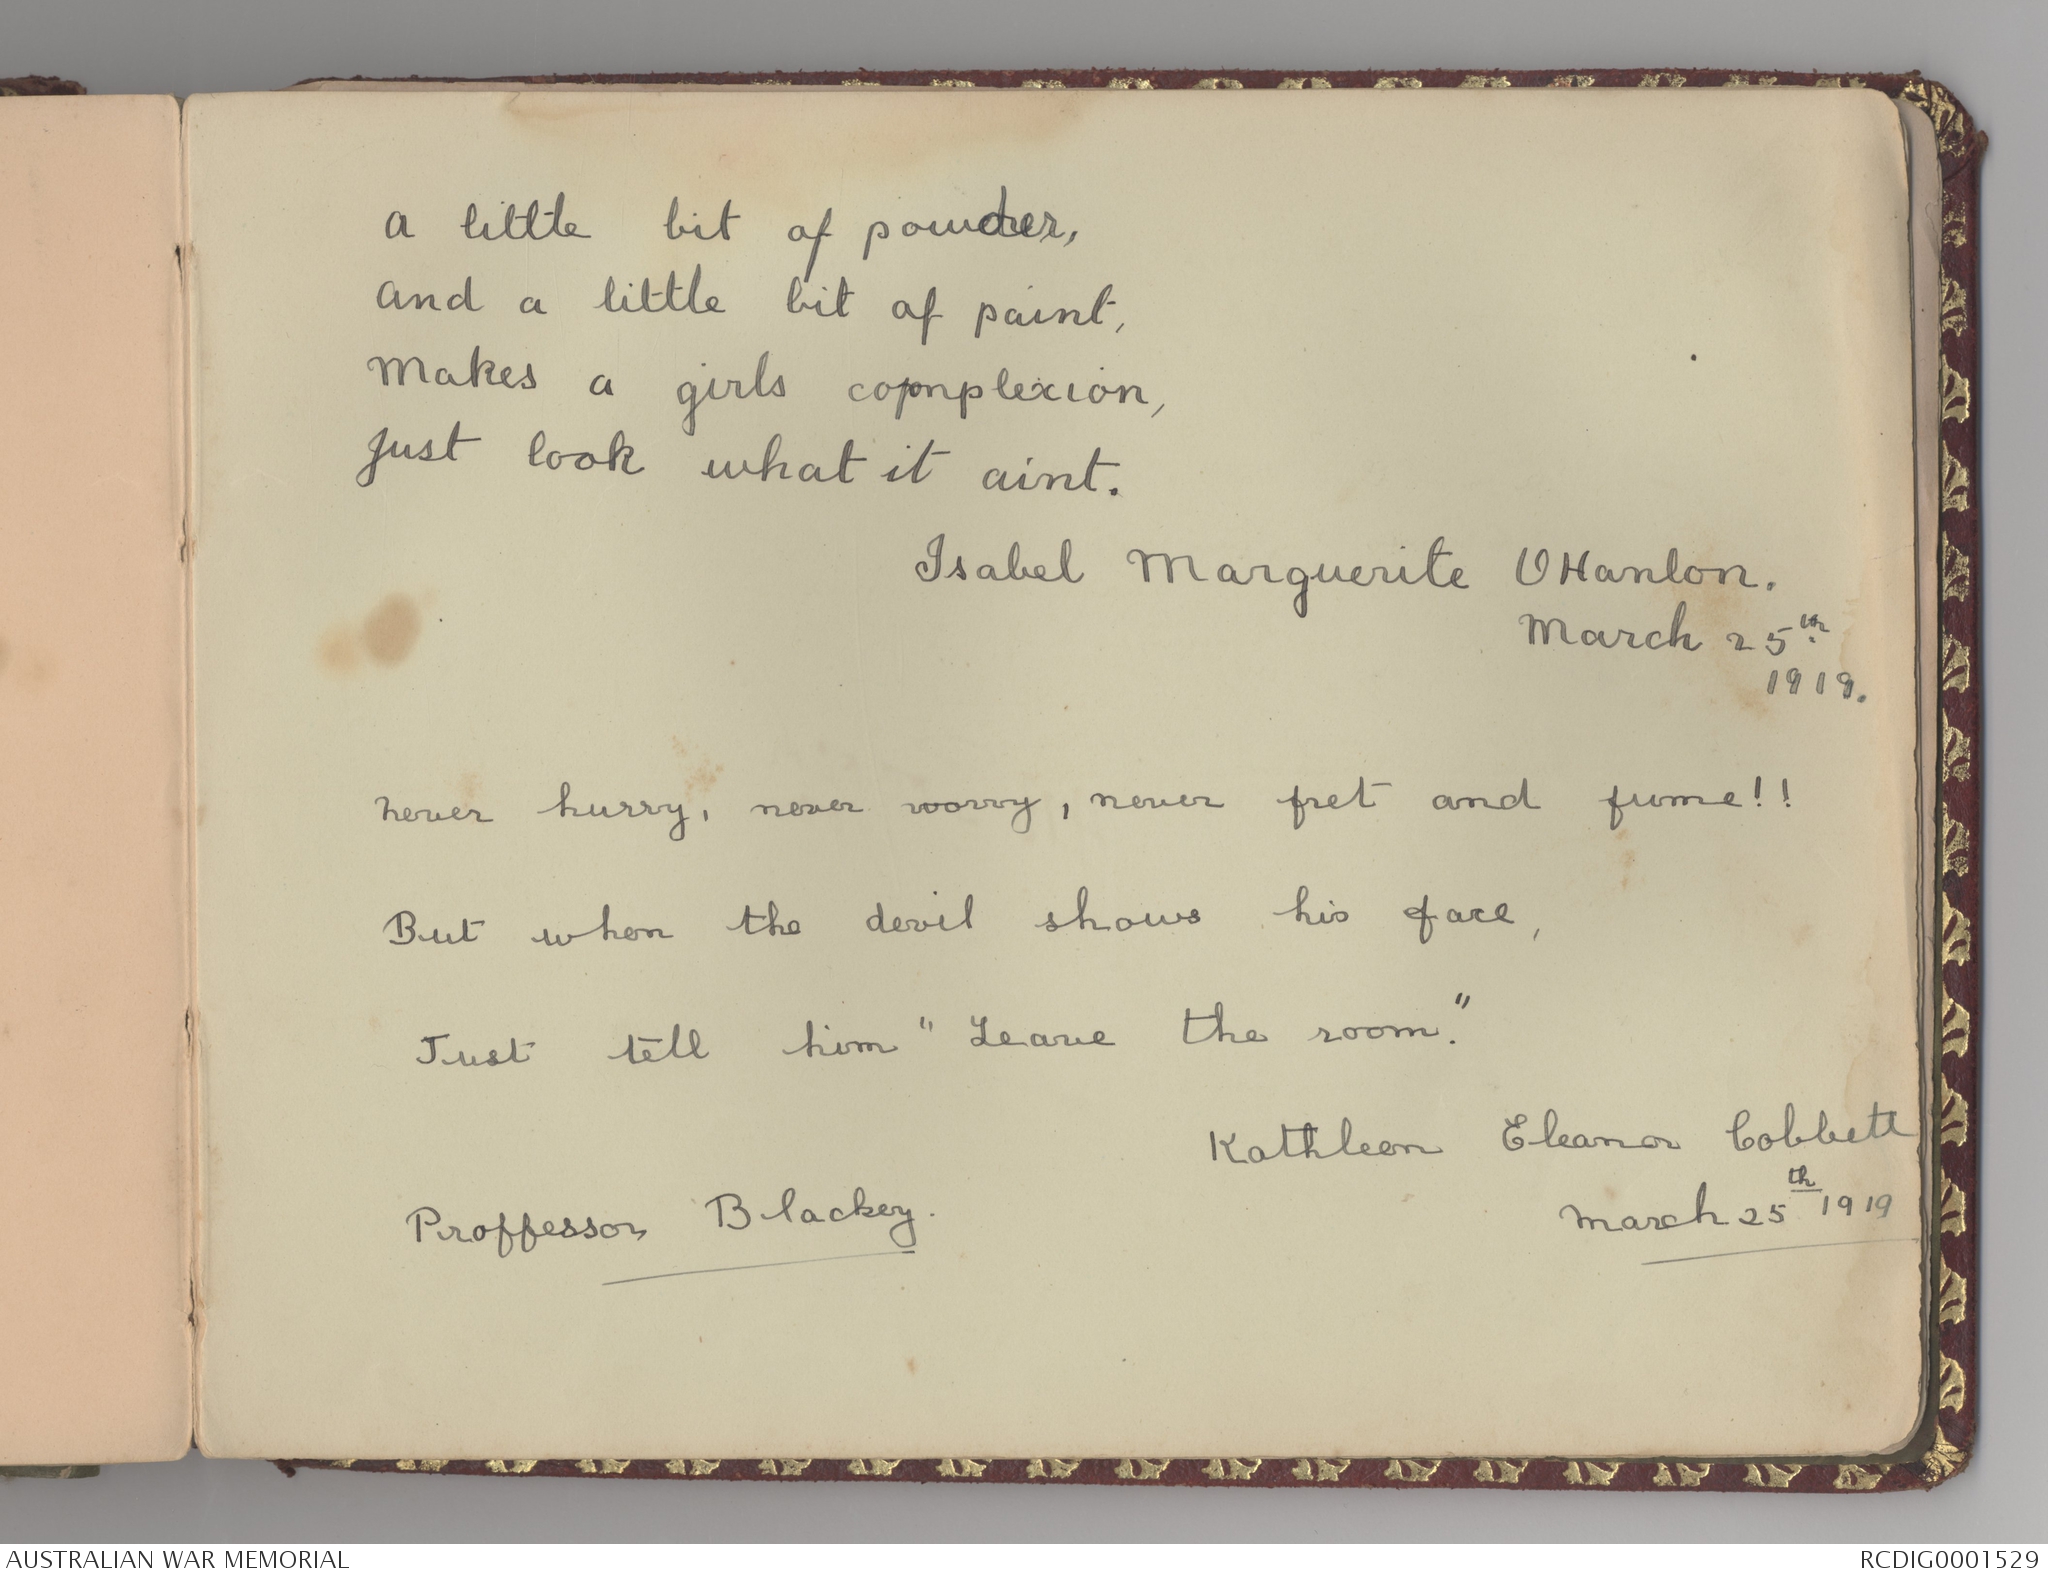 A little bit of powder,
And a little bit of paint,
Makes a girls complexion,
Just look what it aint.
Isabel Marguerite OHanlon.
March 25th
1919.
Never hurry, never worry, never fret and fume!!
But when the devil shows his face,
Just tell him "Leave the room."
Kathleen Eleanor Cobbett
Proffessor Blackey.
March 25th 1919
AUSTRALIAN WAR MEMORIAL
RCDIG0001529